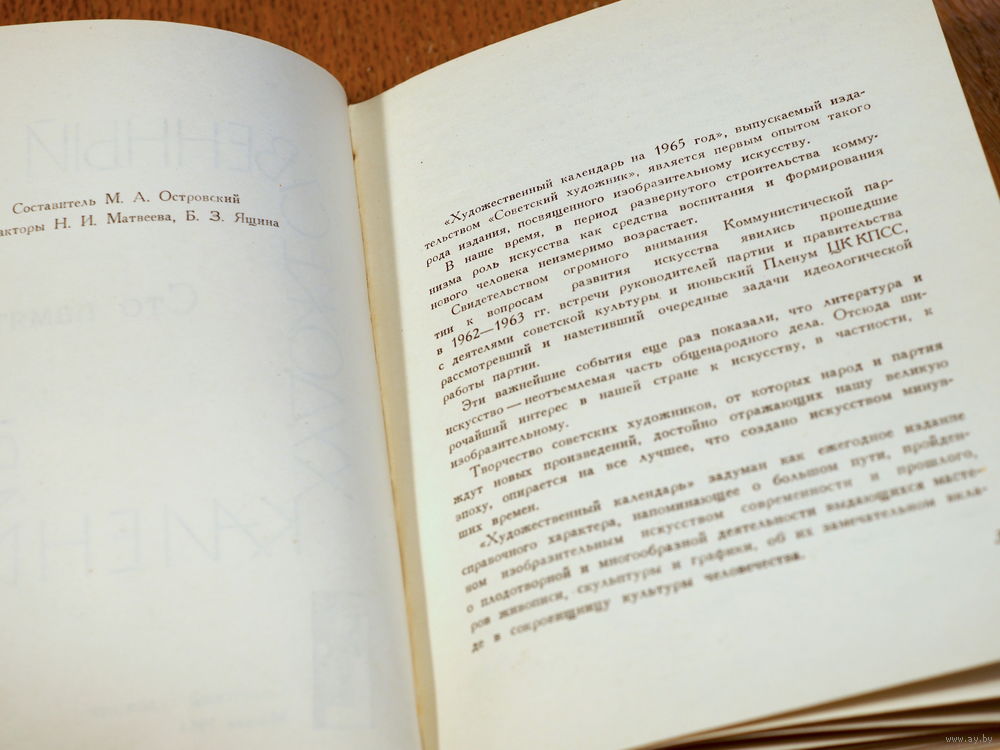 Составитель М. А. Островский
акторы Н. И. Матвеева, Б. З. Ящина
«Художественный календарь на 1965 год», выпускаемый изда-
тельством «Советский художник», является первым опытом такого
рода издания, посвященного изобразительному искусству.
В наше время, в период развернутого строительства комму-
низма роль искусства как средства воспитания и формирования
нового человека неизмеримо возрастает.
Свидетельством огромного внимания Коммунистической пар-
тии к вопросам развития искусства явились прошедшие
в 1962—1963 гг. встречи руководителей партии и правительства
с деятелями советской культуры и июньский Пленум ЦК КПСС,
рассмотревший и наметивший очередные задачи идеологической
работы партии.
Эти важнейшие события еще раз показали, что литература и
искусство — неотъемлемая часть общенародного дела. Отсюда ши-
рочайший интерес в нашей стране к искусству, в частности, к
изобразительному.
Творчество советских художников, от которых народ и партия
ждут новых произведений, достойно отражающих нашу великую
эпоху, опирается на все лучшее, что создано искусством минув-
ших времен.
«Художественный календарь» задуман как ежегодное издание
справочного характера, напоминающее о большом пути, пройден-
ном изобразительным искусством современности и прошлого,
о плодотворной и многообразной деятельности выдающихся масте-
ров живописи, скульптуры и графики, об их замечательном вкла-
де в сокровищницу культуры человечества.
www.ay.by